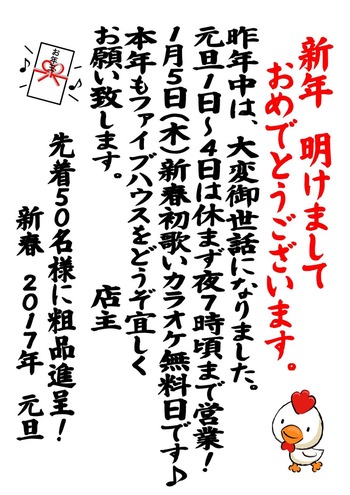 新年 明けまして
おめでとうございます。
昨年中は、大変御世話になりました。
元旦1日～4日は休まず夜7時頃まで営業！
1月5日(木)新春初歌いカラオケ無料日です♪
本年もファイブハウスをどうぞ宜しく
お願い致します。
店主
先着50名様に粗品進呈！
新春 2017年 元旦
お年賀